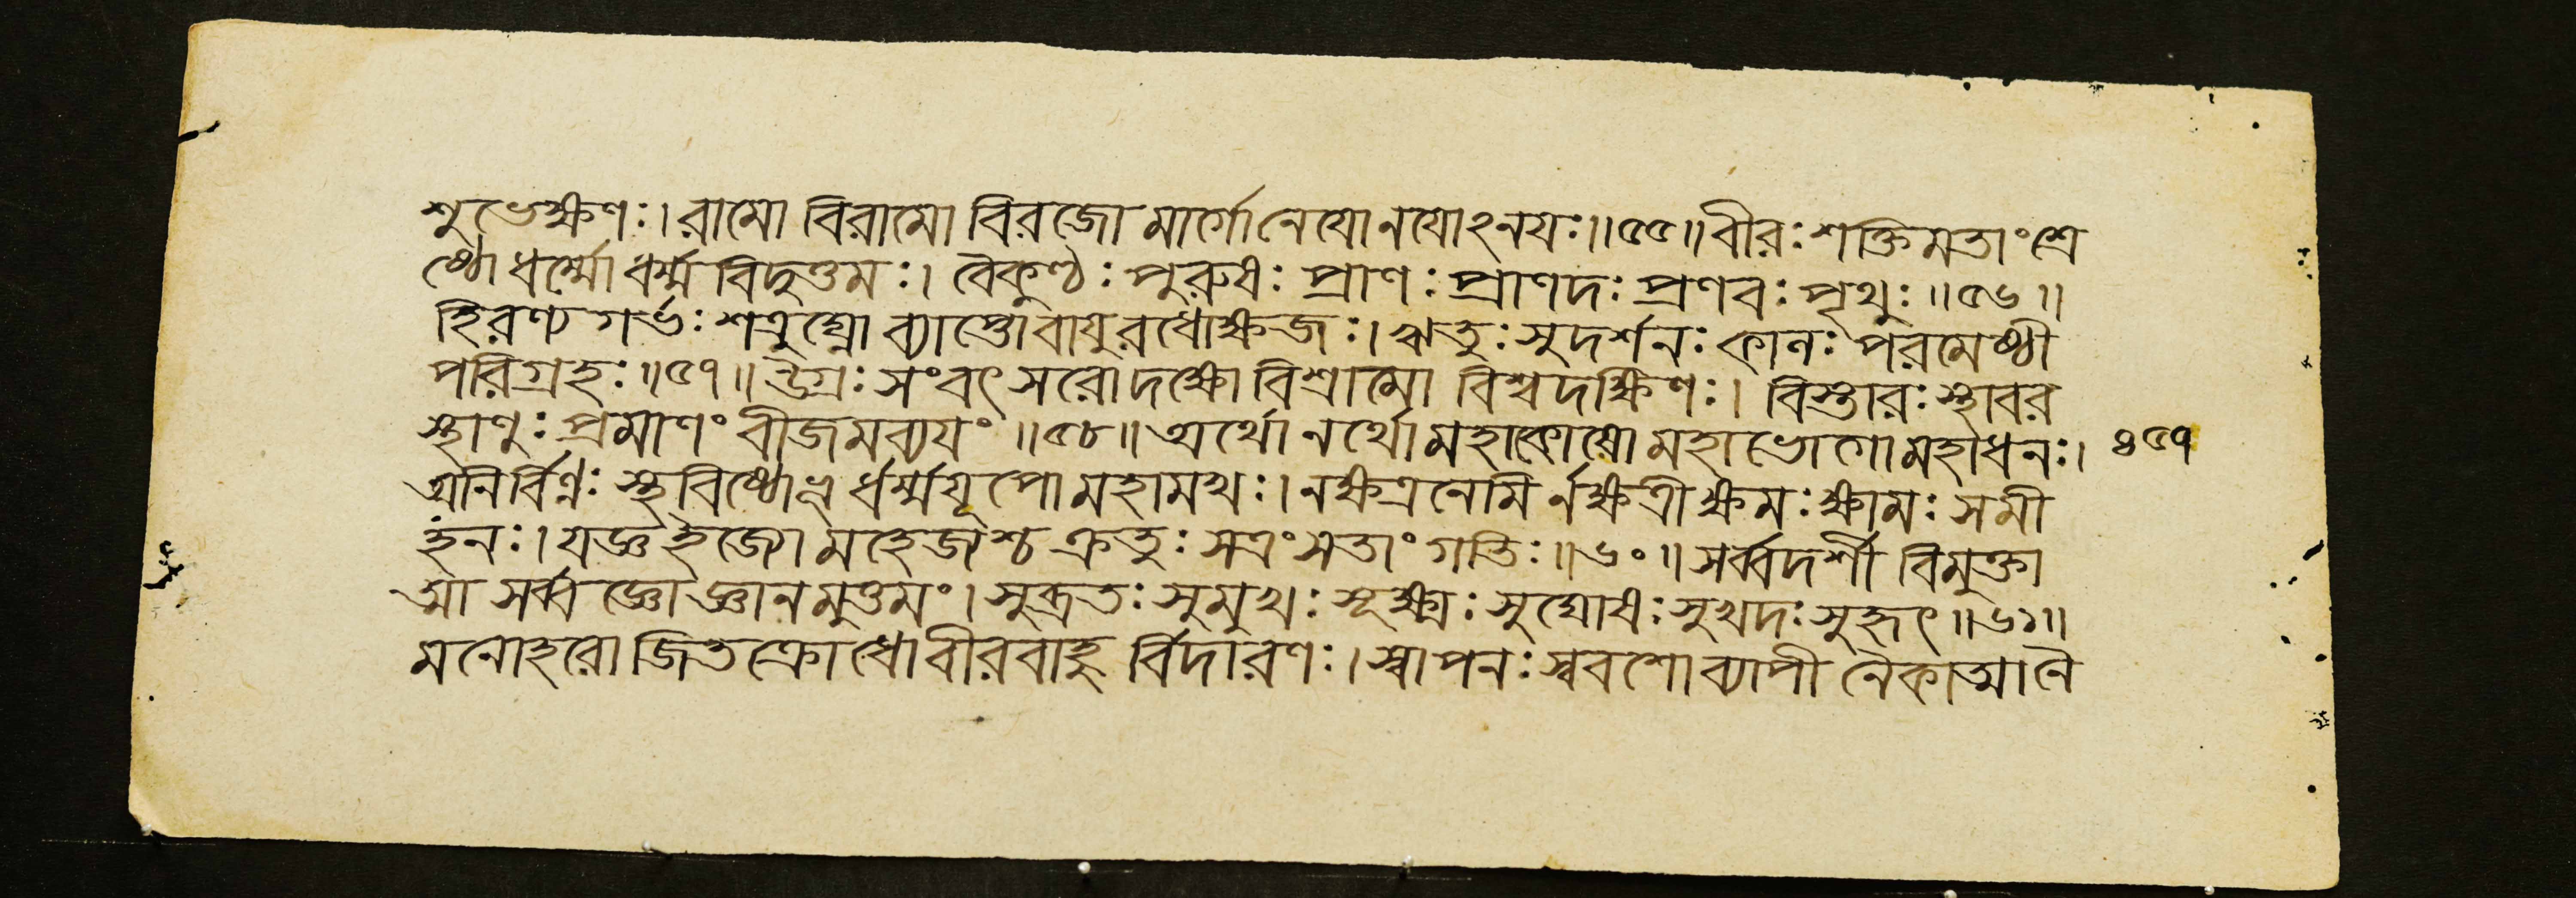 শুভেক্ষণঃ।রামো বিরামো বিরজো মার্গোনেযোনযোঽনযঃ॥৫৫॥বীরঃশক্তিমতাংশ্রে
ষ্ঠোধর্ম্মোধর্ম্মবিদুত্তমঃ। বৈকুণ্ঠঃ পুরুষঃ প্রাণঃ প্রাণদঃ প্রণবঃ পৃথুঃ ॥৫৬॥
হিরণ্য গর্ভঃ শত্রুঘ্নো ব্যাপ্তোবাযুরধোক্ষজঃ।ঋতুঃ সুদর্শনঃ কালঃ পরমেষ্ঠী
পরিগ্রহঃ॥৫৭॥ উগ্রঃ সংবৎ সরোদক্ষোবিশ্রামো বিশ্বদক্ষিণঃ। বিস্তারঃ স্থাবর
স্থাণুঃ প্রমাণং বীজমব্যযং ॥৫৮॥ অর্থো নর্থোমহাকোষোমহাভোগোমহাধনঃ।
৪৫৭
অনির্বিণ্ণঃ স্থবিষ্ঠোভূর্ধর্ম্মযূপোমহামখঃ।নক্ষত্রনেমির্নক্ষত্রীক্ষমঃক্ষামঃ সমী
হনঃ।যজ্ঞইজ্যোমহেজ্যশ্চ ক্রতুঃ সত্রংসতাং গতিঃ॥৬০॥সর্ব্বদর্শী বিমুক্তা
ত্মা সর্ব্বজ্ঞোজ্ঞানমুত্তমং।সুব্রতঃ সুমুখঃ সূক্ষ্মঃ সুঘোষঃ সুখদঃ সুহৃৎ॥৬১॥
মনোহরোজিতক্রোধোবীরবাহু র্বিদারণঃ।স্বাপনঃ স্ববশোব্যাপী নৈকাত্মানৈ